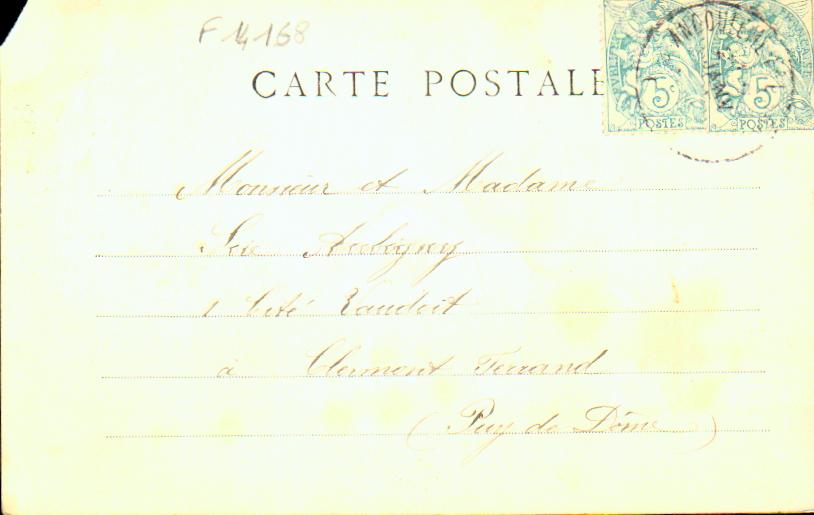 F 14168
CARTE POSTALE
ANGOULEME
5c 5c
POSTES POSTES
Monsieur et Madame
Aubigny
1 Cité Vaudoit
à Clermont Ferrand
(Puy de Dôme)